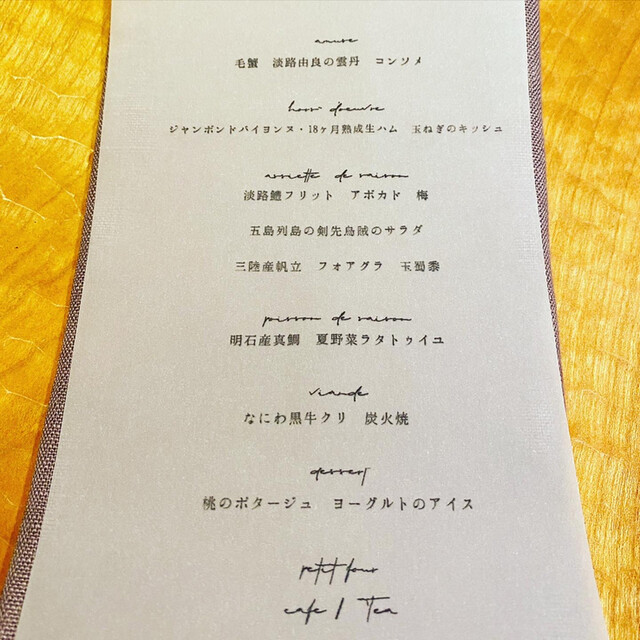 amuse
毛蟹　淡路由良の雲丹　コンソメ
hors d'oeuvre
ジャンボンドバイヨンヌ・18ヶ月熟成生ハム　玉ねぎのキッシュ
assiette de saison
淡路鱧フリット　アボカド　梅
五島列島の剣先烏賊のサラダ
三陸産帆立　フォアグラ　玉蜀黍
poisson de saison
明石産真鯛　夏野菜ラタトゥイユ
viande
なにわ黒牛クリ　炭火焼
dessert
桃のポタージュ　ヨーグルトのアイス
petit four
cafe / Tea